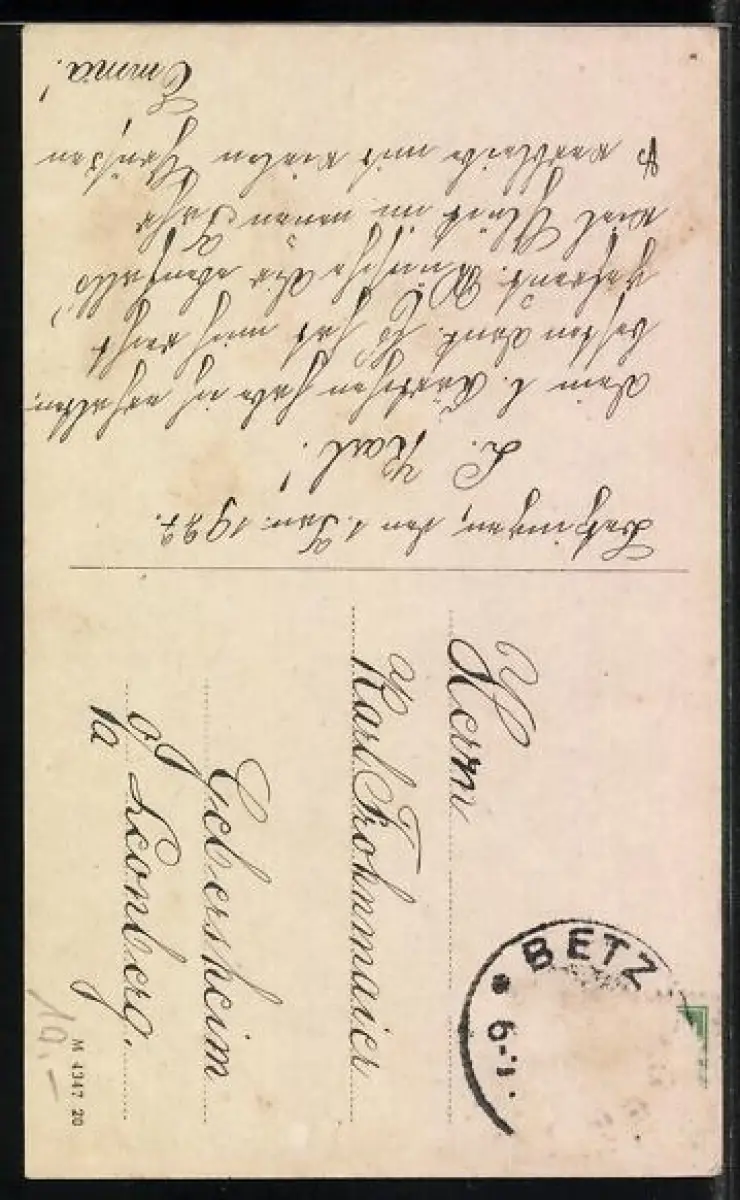 Betzingen, den 1. Jan. 1927.
L. Karl!
Dein l. Kärtchen habe ich erhalten.
besten Dank. Es hat mich recht
gefreut. Wünsche Dir ebenfalls
viel Glück im neuen Jahr
& verbleibe mit vielen Grüßen
Emma!
Herrn
Karl Frohnmaier
Gebersheim
Leonberg.
BETZ
* 6-
M 4347 20
10.-